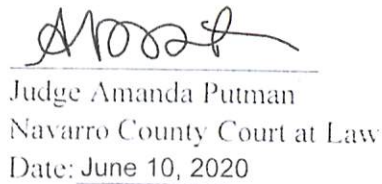 Judge Amanda Putman
Navarro County Court at Law
Date: June 10, 2020